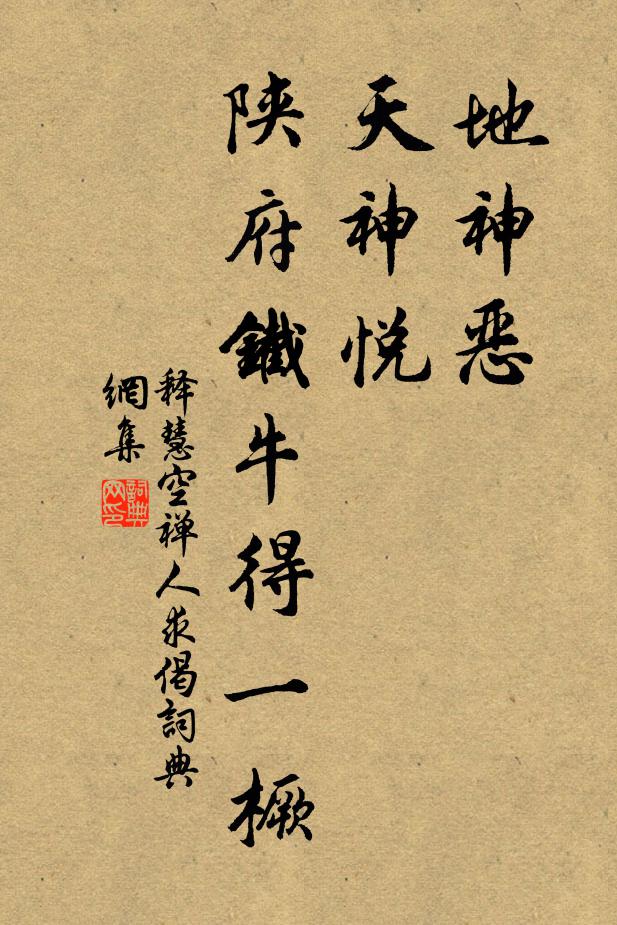 地神恶
天神悦
陕府鐵牛得一橛
释慧空禅人求偈詞典
網集
詞典
网印